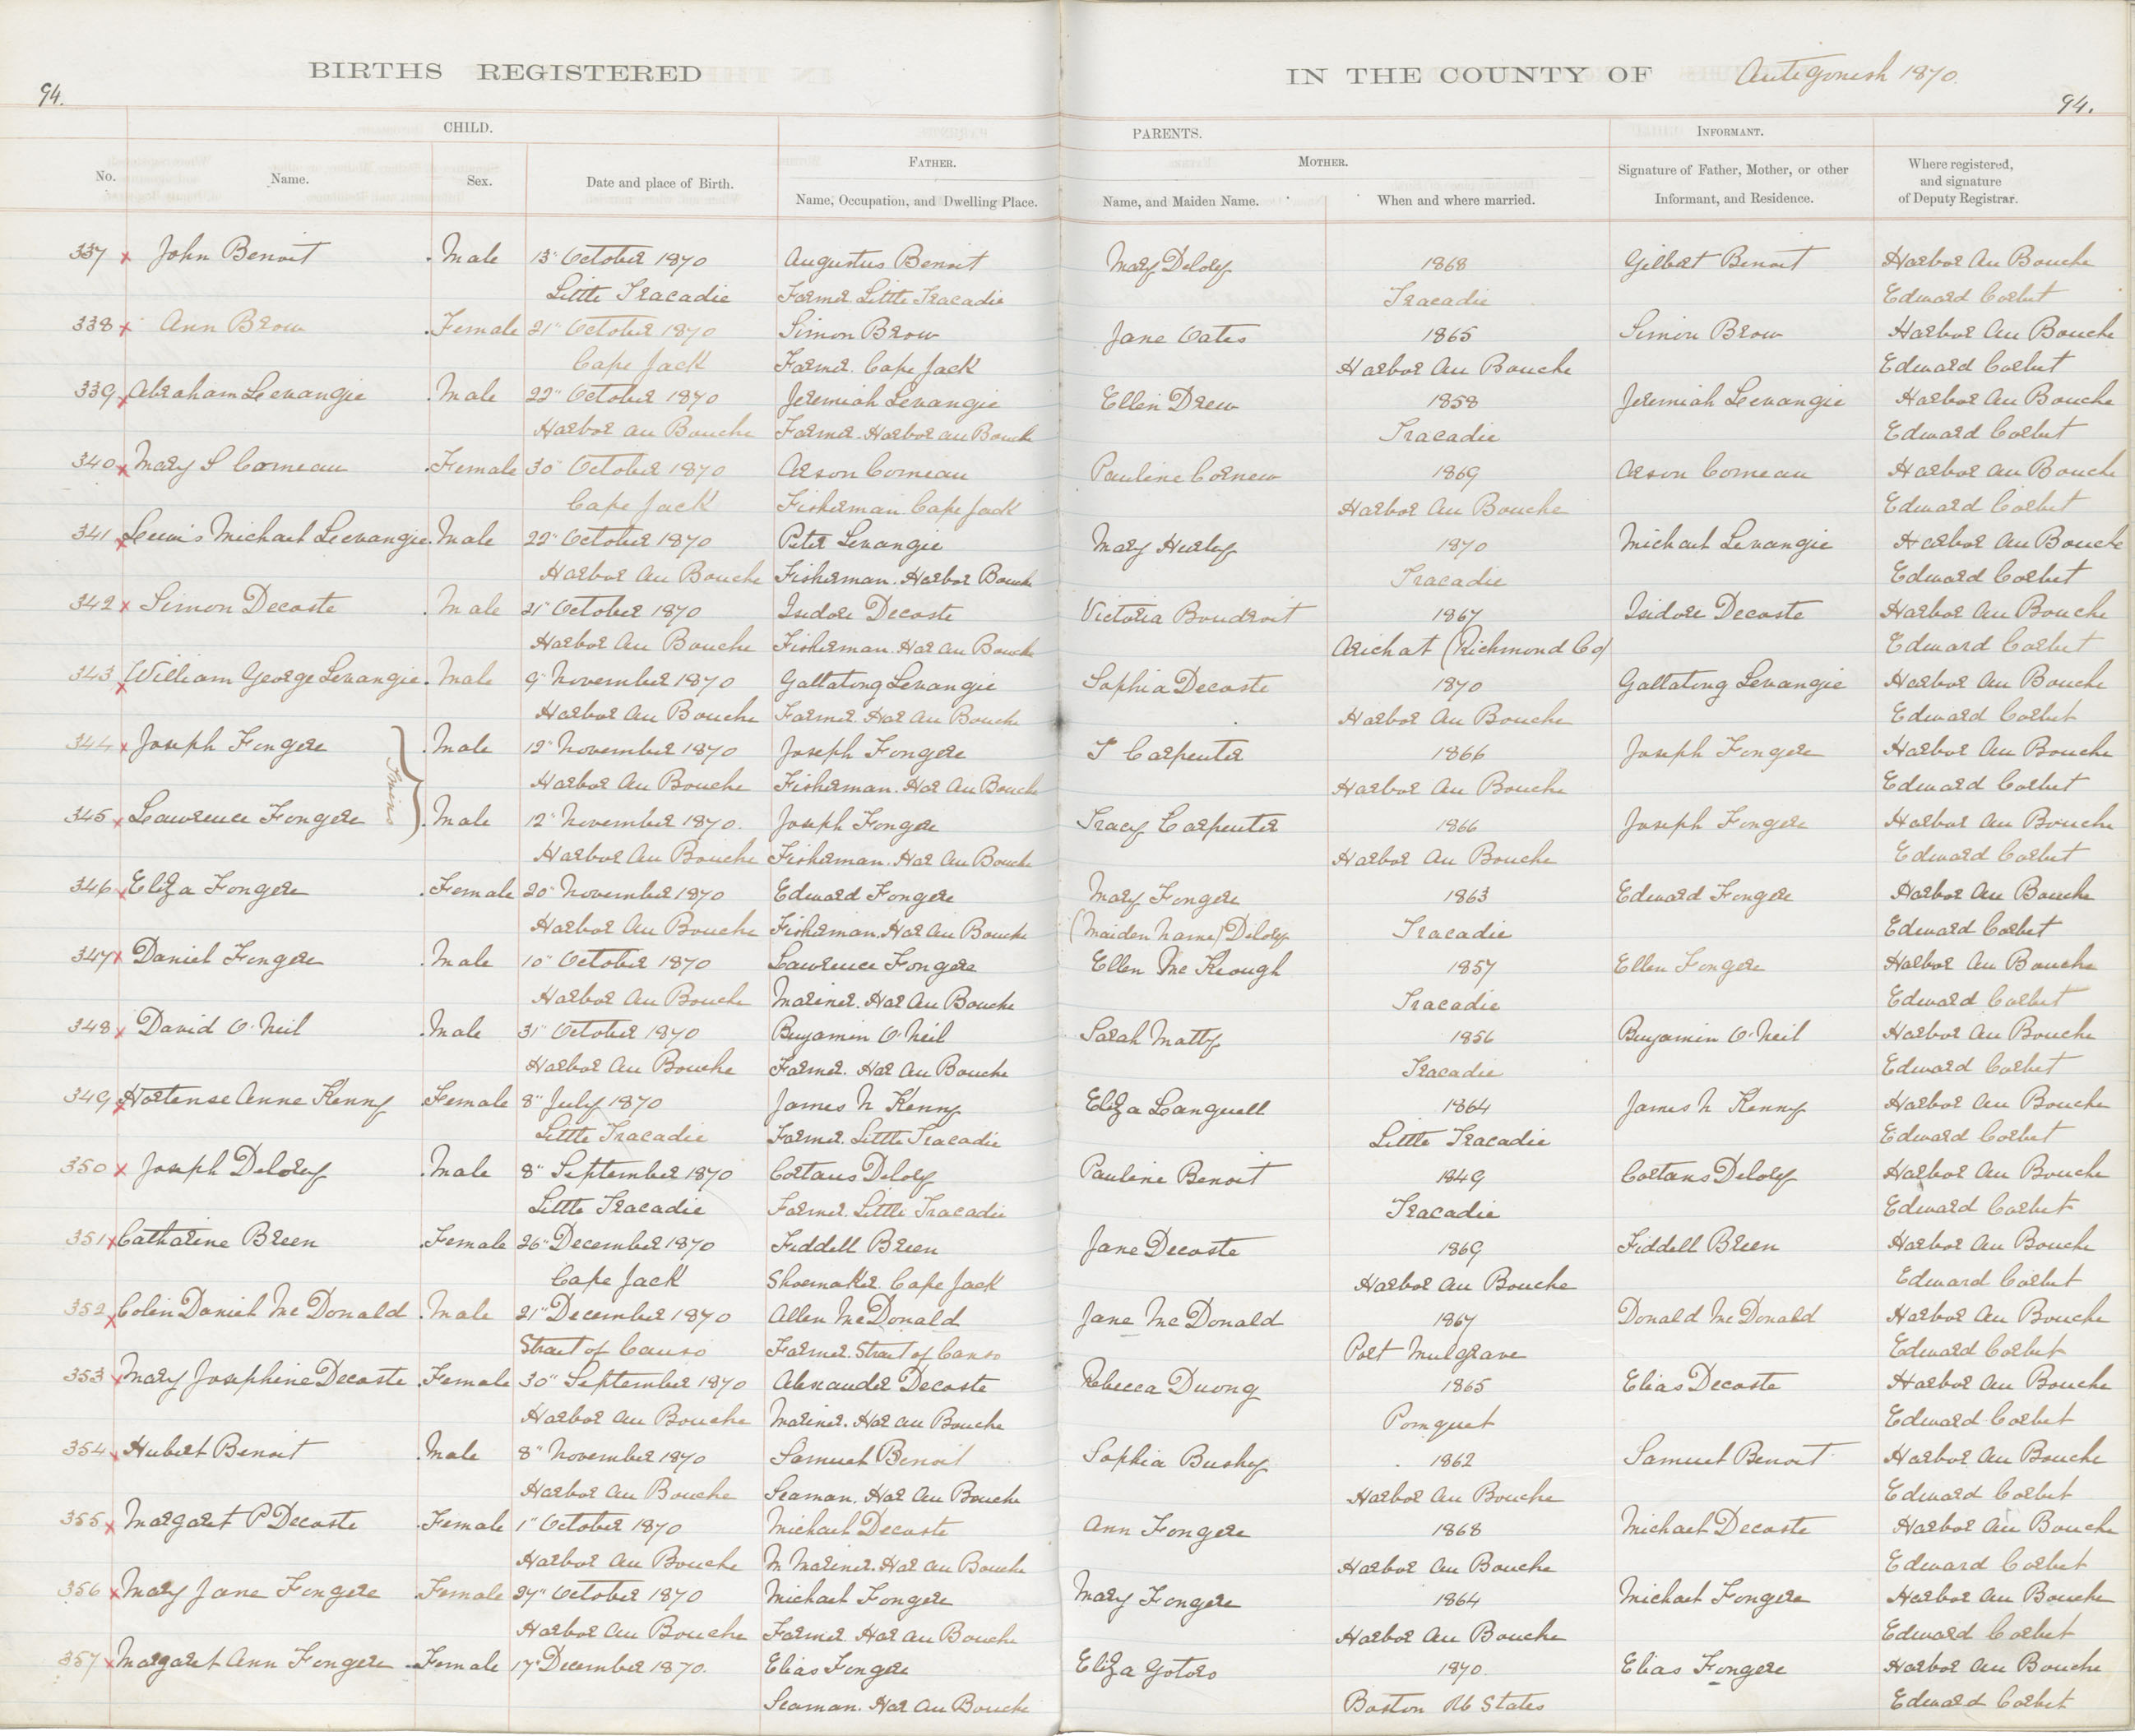 BIRTHS REGISTERED IN THE COUNTY OF Antigonish 1870.
94. 94.
CHILD. PARENTS. INFORMANT.
No. Name. Sex. Date and place of Birth. FATHER. Name, Occupation, and Dwelling Place. MOTHER. Name, and Maiden Name. When and where married. Signature of Father, Mother, or other Informant, and Residence. Where registered, and signature of Deputy Registrar.
337 x John Benoit Male 13" October 1870 Augustus Benoit Mary Delory 1868 Gilbert Benoit Harbor Au Bouche
Little Tracadie Farmer. Little Tracadie Tracadie Edward Corbet
338 x Ann Brow Female 21" October 1870 Simon Brow Jane Oates 1865 Simon Brow Harbor Au Bouche
Cape Jack Farmer. Cape Jack Harbor Au Bouche Edward Corbet
339 x Abraham Levangie Male 22" October 1870 Jeremiah Levangie Ellen Drew 1858 Jeremiah Levangie Harbor Au Bouche
Harbor au Bouche Farmer. Harbor au Bouche Tracadie Edward Corbet
340 x Mary S Comeau Female 30" October 1870 Arson Comeau Pauline Cornew 1869 Arson Comeau Harbor Au Bouche
Cape Jack Fisherman. Cape Jack Harbor Au Bouche Edward Corbet
341 x Lewis Michael Levangie Male 22" October 1870 Peter Levangie Mary Hurley 1870 Michael Levangie Harbor Au Bouche
Harbor Au Bouche Fisherman. Harbor Bouche Tracadie Edward Corbet
342 x Simon Decoste Male 21" October 1870 Isidore Decoste Victoria Boudroit 1867 Isidore Decoste Harbor Au Bouche
Harbor Au Bouche Fisherman. Har Au Bouche Arichat (Richmond Co) Edward Corbet
343 x William George Levangie Male 9" November 1870 Levangie Sophia Decoste 1870 Levangie Harbor Au Bouche
Harbor Au Bouche Farmer. Har Au Bouche Harbor Au Bouche Edward Corbet
344 x Joseph Fongere Male 12" November 1870 Joseph Fongere T Carpenter 1866 Joseph Fongere Harbor Au Bouche
Twins
Harbor Au Bouche Fisherman. Har Au Bouche Harbor Au Bouche Edward Corbet
345 x Lawrence Fongere Male 12" November 1870. Joseph Fongere Tracy Carpenter 1866 Joseph Fongere Harbor Au Bouche
Harbor Au Bouche Fisherman. Har Au Bouche Harbor Au Bouche Edward Corbet
346 x Eliza Fongere Female 20" November 1870 Edward Fongere Mary Fongere 1863 Edward Fongere Harbor Au Bouche
Harbor Au Bouche Fisherman. Har Au Bouche (Maiden Name) Delory Tracadie Edward Corbet
347 x Daniel Fongere Male 10" October 1870 Lawrence Fongere Ellen Mc Keough 1857 Ellen Fongere Harbor Au Bouche
Harbor Au Bouche Mariner. Har Au Bouche Tracadie Edward Corbet
348 x David O'Neil Male 31" October 1870 Benjamin O'Neil Sarah Matty 1856 Benjamin O'Neil Harbor Au Bouche
Harbor Au Bouche Farmer. Har Au Bouche Tracadie Edward Corbet
349 x Hortense Anne Kenny Female 8" July 1870 James N Kenny Eliza Languell 1864 James N Kenny Harbor Au Bouche
Little Tracadie Farmer. Little Tracadie Little Tracadie Edward Corbet
350 x Joseph Delory Male 8" September 1870 Coetans Delory Pauline Benoit 1849 Coetans Delory Harbor Au Bouche
Little Tracadie Farmer. Little Tracadie Tracadie Edward Corbet
351 x Catharine Breen Female 26" December 1870 Fiddell Breen Jane Decoste 1869 Fiddell Breen Harbor Au Bouche
Cape Jack Shoemaker. Cape Jack Harbor Au Bouche Edward Corbet
352 x Colin Daniel Mc Donald Male 21" December 1870 Allen McDonald Jane Mc Donald 1867 Donald Mc Donald Harbor Au Bouche
Strait of Canso Farmer. Strait of Canso Port Mulgrave Edward Corbet
353 x Mary Josephine Decoste Female 30" September 1870 Alexander Decoste Rebecca Duong 1865 Elias Decoste Harbor Au Bouche
Harbor Au Bouche Mariner. Har au Bouche Pomquet Edward Corbet
354 x Hubert Benoit Male 8" November 1870 Samuel Benoit Sophia Bushey 1862 Samuel Benoit Harbor Au Bouche
Harbor Au Bouche Seaman. Har Au Bouche Harbor Au Bouche Edward Corbet
355 x Margaret P Decoste Female 1" October 1870 Michael Decoste Ann Fongere 1868 Michael Decoste Harbor Au Bouche
Harbor Au Bouche M Mariner. Har au Bouche Harbor Au Bouche Edward Corbet
356 x Mary Jane Fongere Female 27" October 1870 Michael Fongere Mary Fongere 1864 Michael Fongere Harbor Au Bouche
Harbor Au Bouche Farmer. Har au Bouche Harbor Au Bouche Edward Corbet
357 x Margaret Ann Fongere Female 17" December 1870. Elias Fongere Eliza Gotoro 1870. Elias Fongere Harbor Au Bouche
Seaman. Har Au Bouche Boston States Edward Corbet